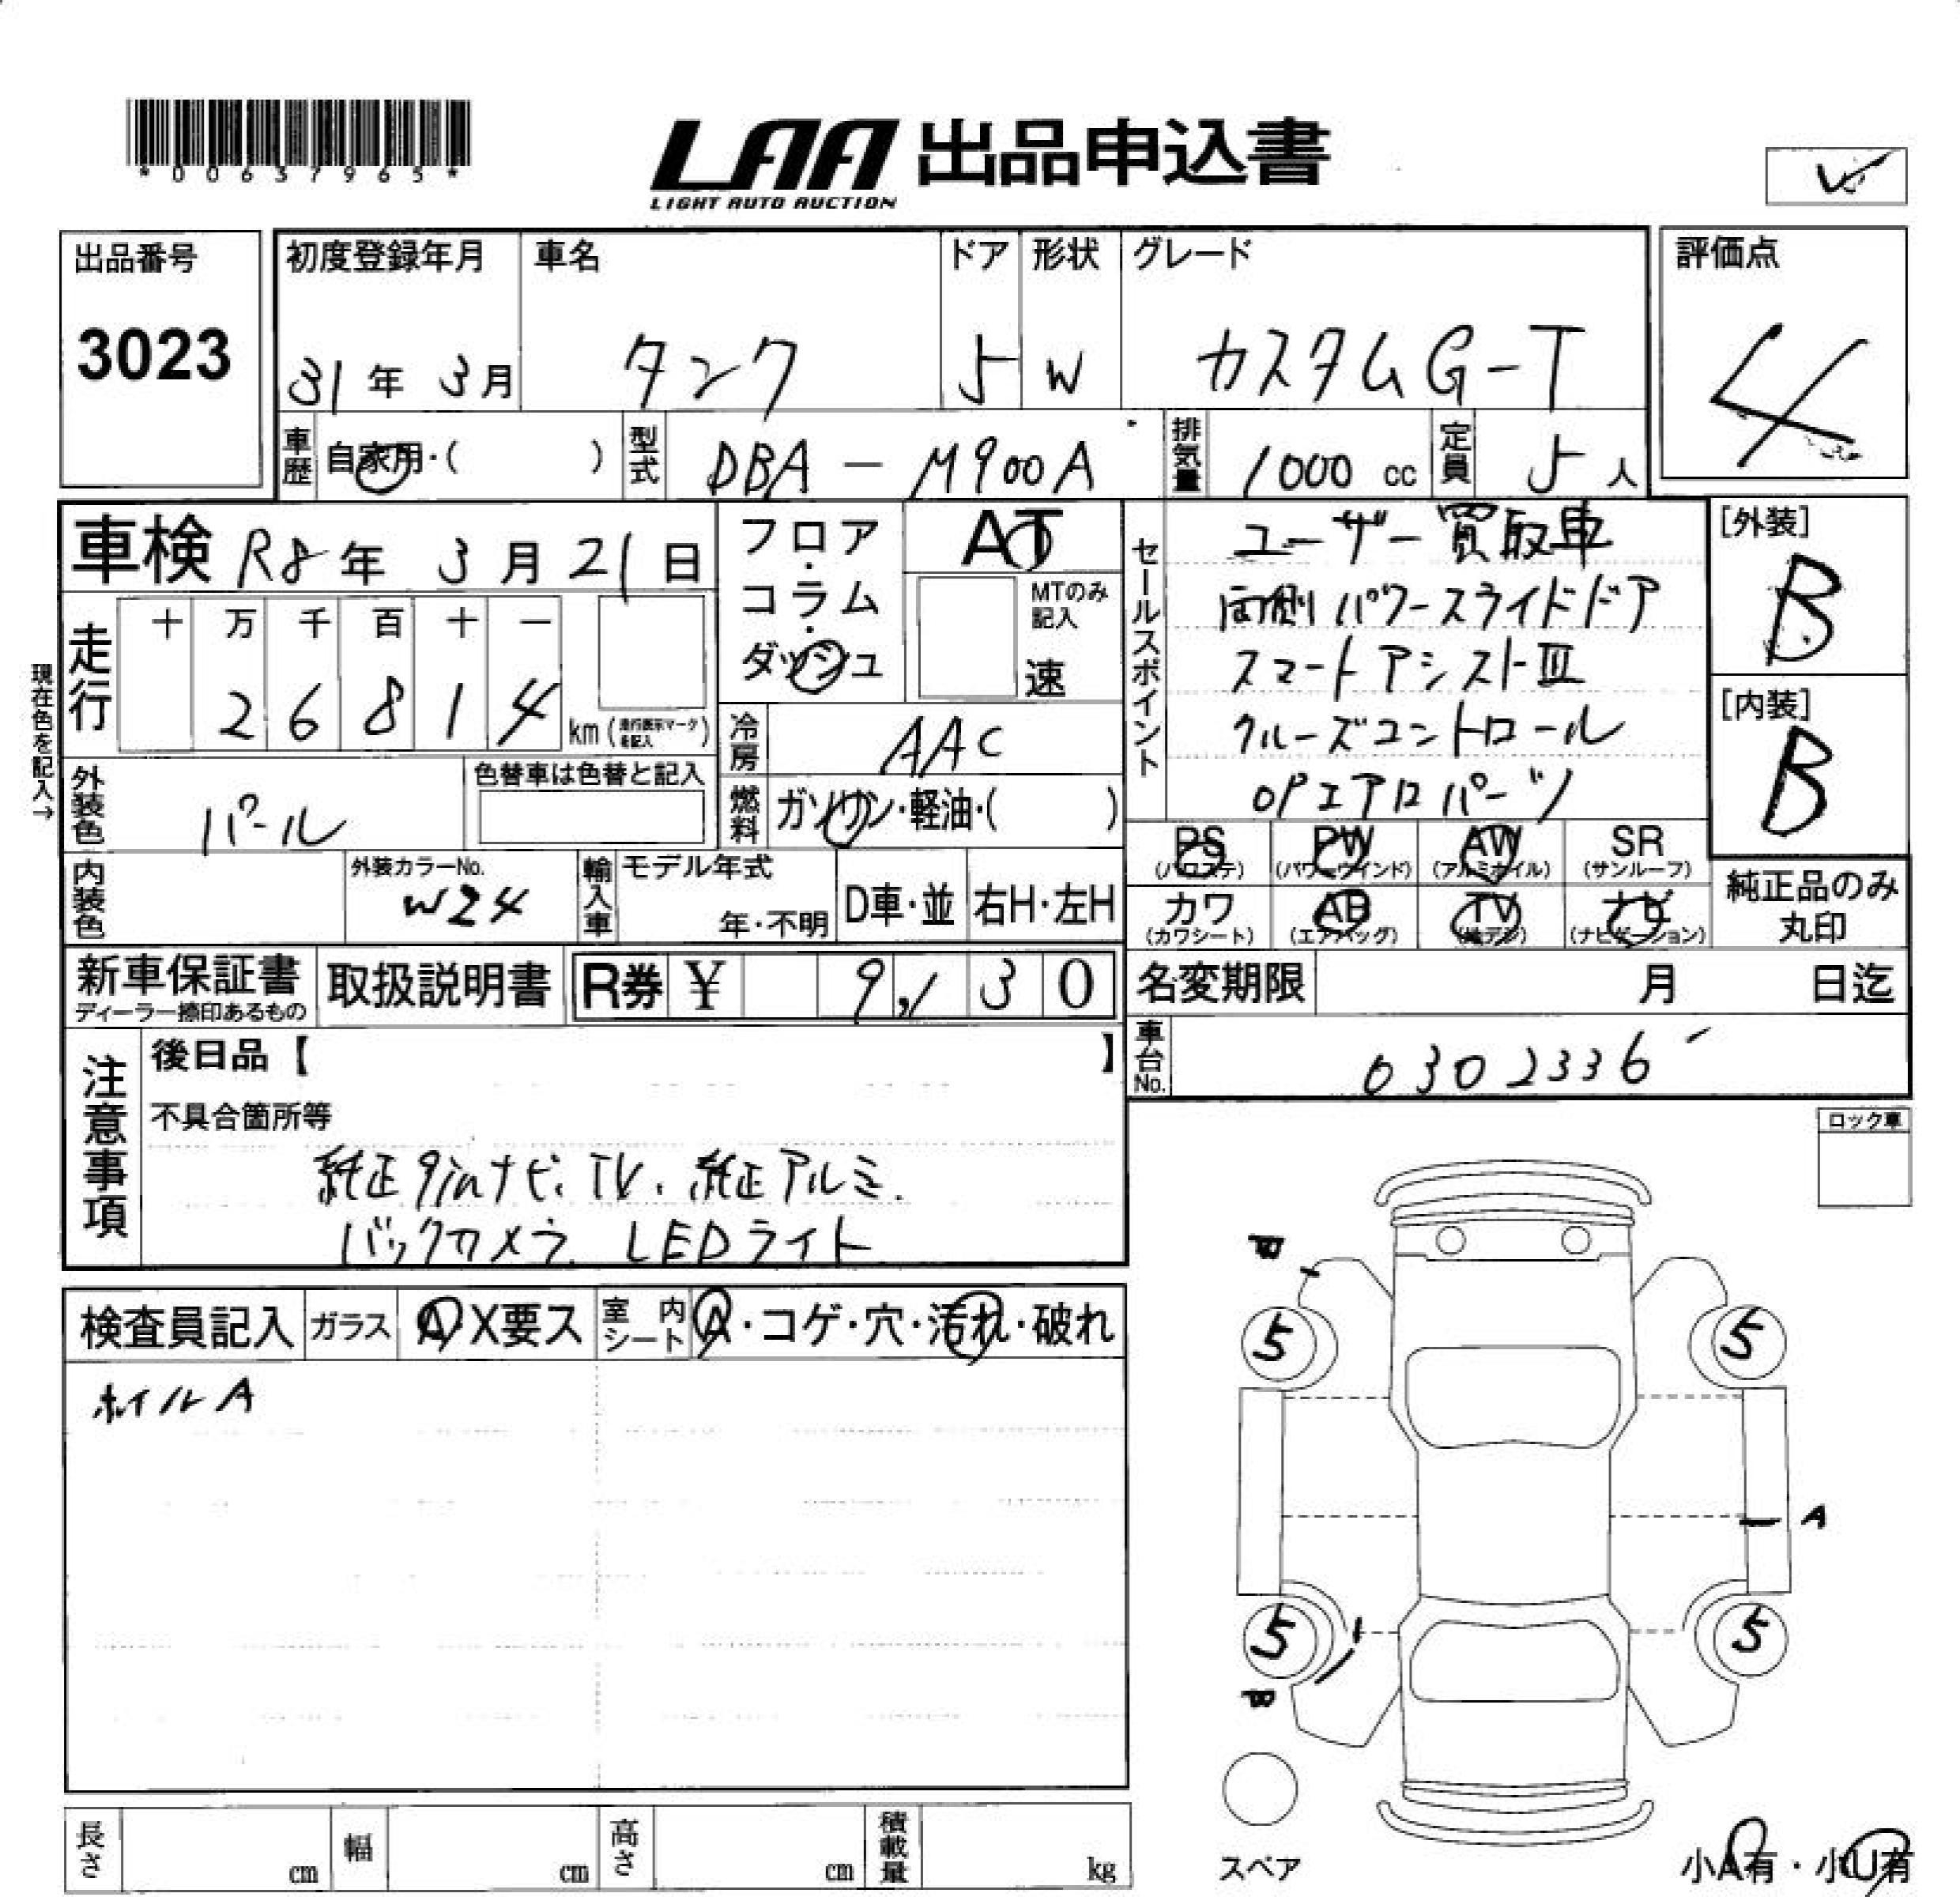 *00637965*
LAA 出品申込書
LIGHT AUTO AUCTION
出品番号
3023
初度登録年月
31年 3月
車名
タンク
ドア
5
形状
W
グレード
カスタムG-T
評価点
4
車歴 自家用・( )
型式 DBA - M900A
排気量 1000 cc
定員 5 人
車検 R8年 3月 21日
フロア・コラム・ダッシュ
AT
MTのみ記入
速
セールスポイント
ユーザー買取車
両側パワースライドドア
スマートアシストⅢ
クルーズコントロール
OPエアロパーツ
[外装]
B
[内装]
B
現在色を記入→
走行
十 万 千 百 十 一
2 6 8 1 4 km (走行表示マークを記入)
冷房 AAC
外装色 パール
色替車は色替と記入
燃料 ガソリン・軽油・( )
内装色
外装カラーNo.
W24
輸入車
モデル年式
年・不明
D車・並
右H・左H
PS (パワステ)
PW (パワーウインド)
AW (アルミホイル)
SR (サンルーフ)
カワ (カワシート)
AB (エアバッグ)
TV (地デジ)
ナビ (ナビゲーション)
純正品のみ
丸印
新車保証書
ディーラー捺印あるもの
取扱説明書
R券 ¥ 9,130
名変期限 月 日迄
車台No. 0302336
注意事項
後日品【 】
不具合箇所等
純正9inナビ、TV、純正アルミ、
バックカメラ、LEDライト
ロック車
検査員記入
ガラス A X要ス
室内シート A・コゲ・穴・汚れ・破れ
ホイルA
5
5
A
5
5
スペア
長さ cm
幅 cm
高さ cm
積載量 kg
小A有・小U有